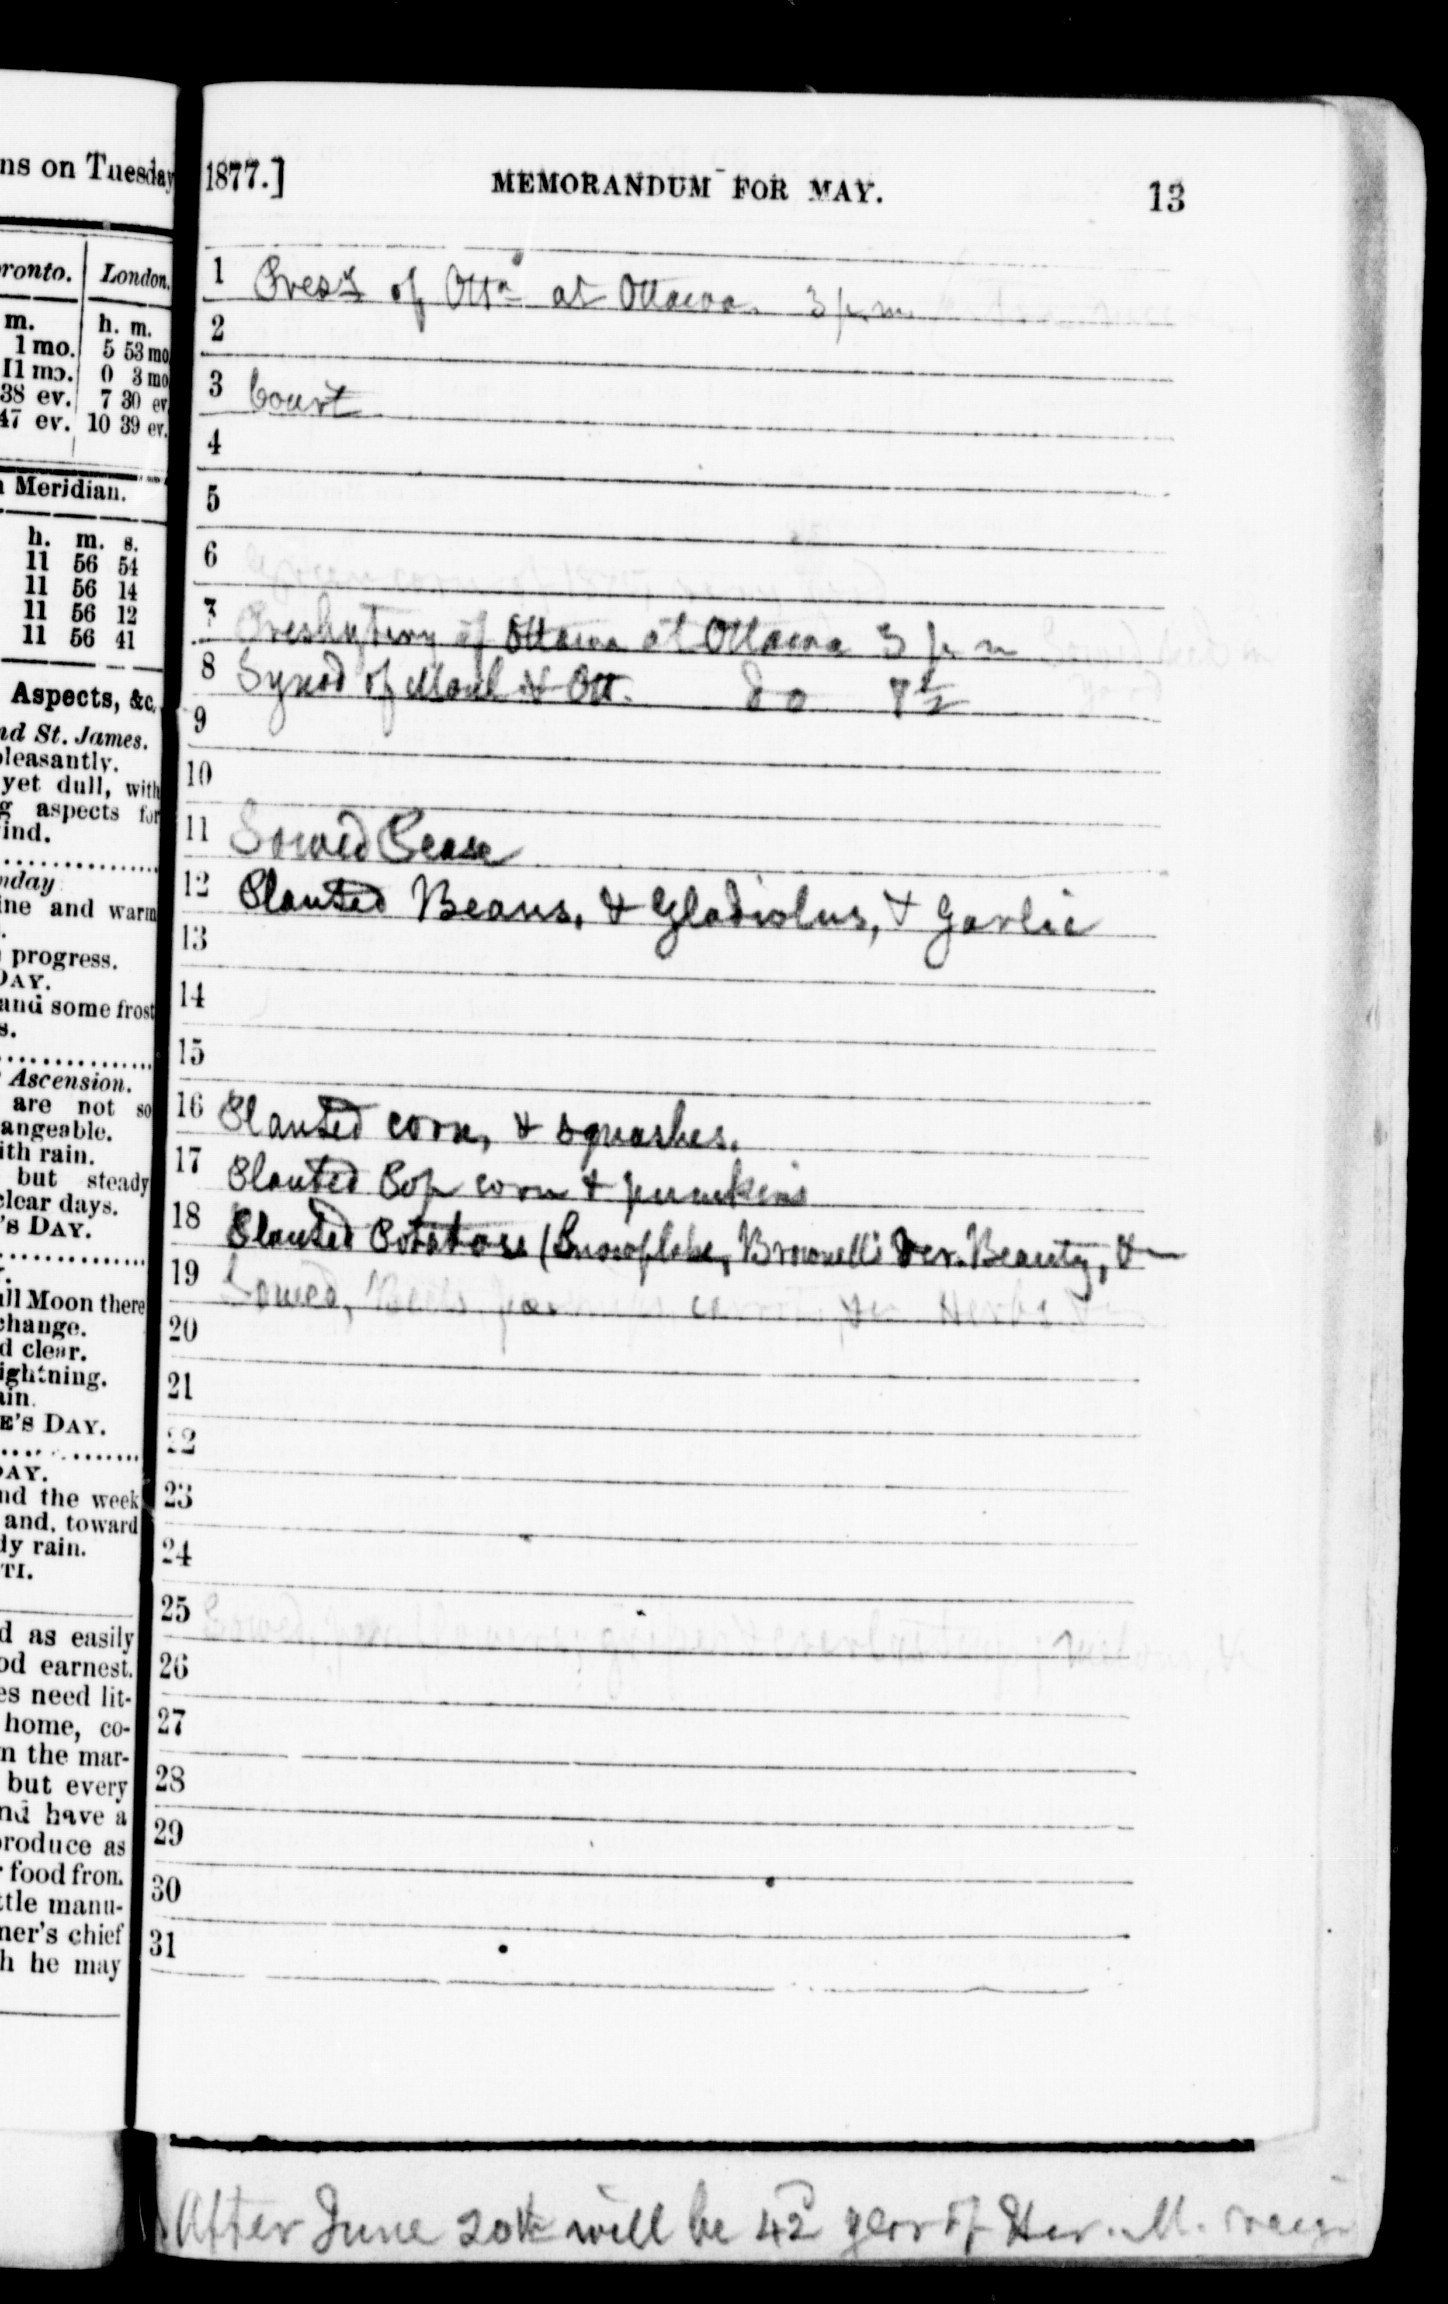 ns on Tuesday
ronto. London.
m. h. m.
1 mo. 5 53 mo
11 mo. 0 3 mo
38 ev. 7 30 ev
47 ev. 10 39 ev.
Meridian.
h. m. s.
11 56 54
11 56 14
11 56 12
11 56 41
Aspects, &c.
nd St. James.
pleasantly.
yet dull, with
g aspects for
ind.
nday
ine and warm
progress.
DAY.
and some frost
s.
Ascension.
are not so
angeable.
ith rain.
but steady
clear days.
'S DAY.
ll Moon there
change.
d clear.
ightning.
ain.
E'S DAY.
AY.
nd the week
and, toward
dy rain.
TI.
d as easily
od earnest.
es need lit-
home, co-
n the mar-
but every
nd have a
produce as
food from.
ttle manu-
ner's chief
h he may
1877.] MEMORANDUM FOR MAY. 13
1 Presy of Otta at Ottawa. 3 p.m.
2
3 Court
4
5
6
7 Presbytery of Ottawa at Ottawa 3 p m
8 Synod of Monl & Ott. do 7½
9
10
11 Sowed Pease
12 Planted Beans, & Gladiolus, & Garlic
13
14
15
16 Planted corn, & squashes.
17 Planted Pop corn & pumkins
18 Planted Potatoes (Snowflake, Brownell's Ver. Beauty, &
19 Sowed, Beets, Herbs
20
21
22
23
24
25 Sowed, melons, &
26
27
28
29
30
31
After June 20th will be 42 year of Her. M. reign